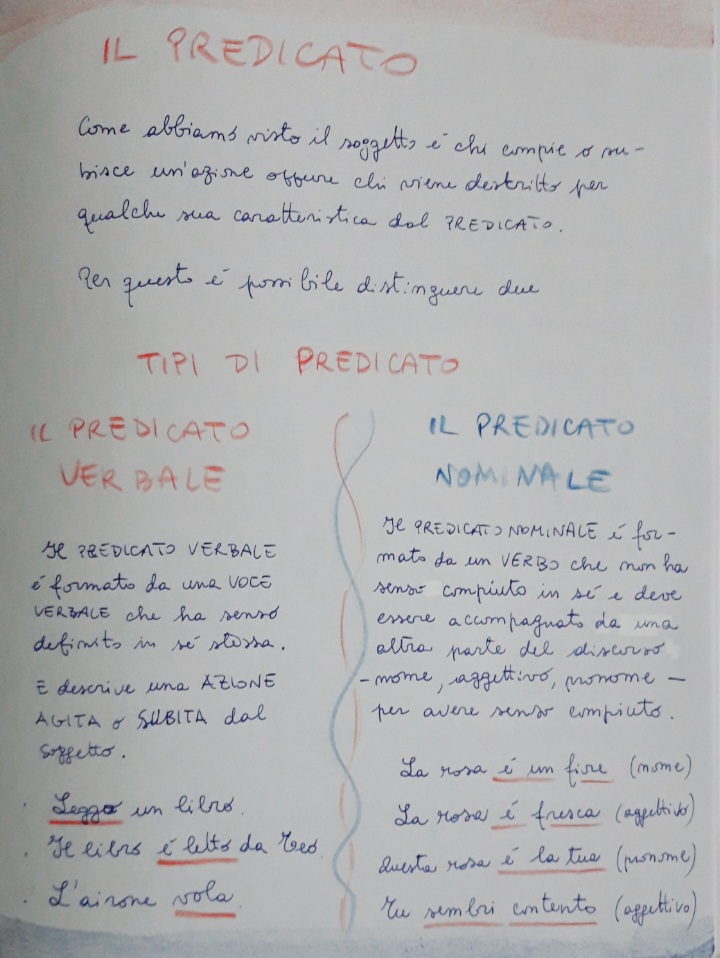 IL PREDICATO
Come abbiamo visto il soggetto é chi compie o su-
bisce un'azione oppure chi viene destritto per
qualche sua caratteristica dal PREDICATO.
Per questo é possibile distinguere due
TIPI DI PREDICATO
IL PREDICATO
VERBALE
Il PREDICATO VERBALE
é formato da una VOCE
VERBALE che ha senso
definito in sé stessa.
E descrive una AZIONE
AGITA o SUBITA dal
soggetto.
Leggo un libro.
Il libro é letto da Teo.
L'airone vola.
IL PREDICATO
NOMINALE
Il PREDICATO NOMINALE é for-
mato da un VERBO che non ha
senso compiuto in sé e deve
essere accompagnato da una
altra parte del discorso
- nome, aggettivo, pronome -
per avere senso compiuto.
La rosa é un fiore (nome)
La rosa é fresca (aggettivo)
Questa rosa é la tua (pronome)
Tu sembri contento (aggettivo)